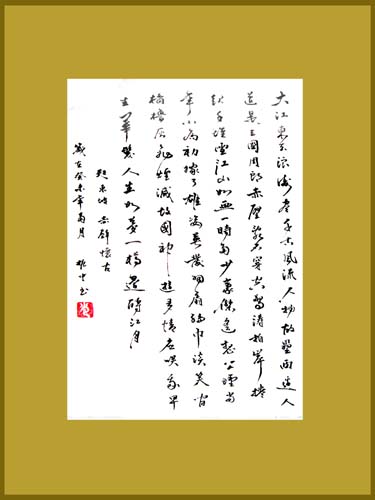 大江東去浪淘盡千古風流人物故壘西邊人
道是三國周郎赤壁亂石穿空驚濤拍岸捲
起千堆雪江山如畫一時多少豪傑遙想公瑾當
年小喬初嫁了雄姿英發羽扇綸巾談笑間
檣櫓灰飛煙滅故國神遊多情應笑我早
生華髮人生如夢一樽還酹江月
東坡赤壁懷古
歲在癸未年菊月 書